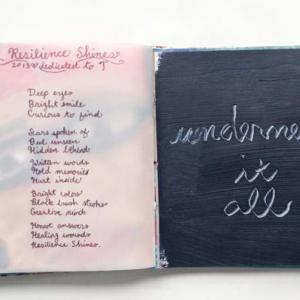 Resilience Shines
2013 dedicated to T
Deep eyes
Bright smile
Curious to find
Scars spoken of
But unseen
Hidden
Written words
Hold memories
Hurt inside
Bright colors
Black brush strokes
Creative mind
Honest answers
Healing wounds
Resilience Shines.
underne
it
all